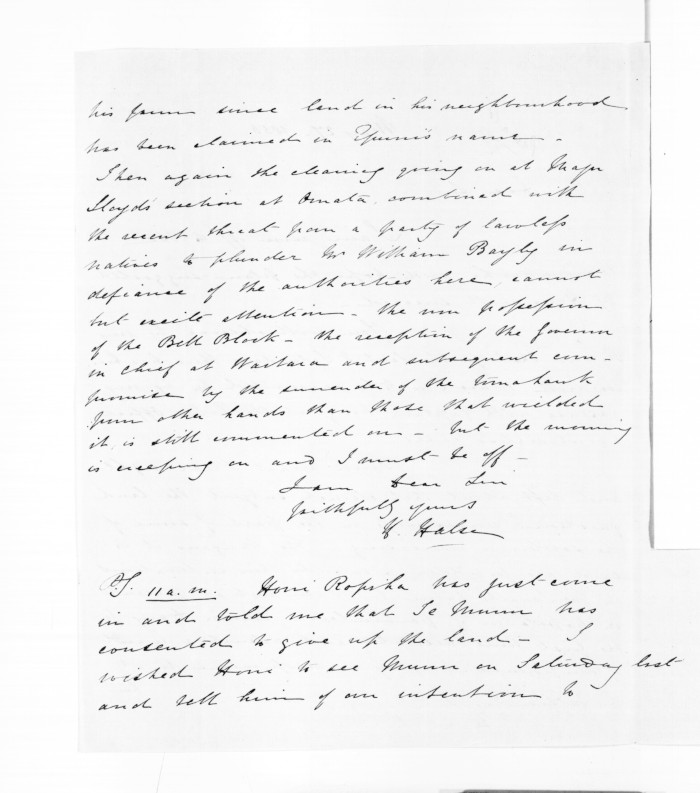 his farm since land in his neighbourhood
has been claimed in Epuni's name -
Then again the clearing going on at Major
Lloyd's section at Omata, combined with
the recent threat from a party of lawless
natives to plunder Mr William Bayly in
defiance of the authorities here, cannot
but excite attention - the non possession
of the Bell Block - the reception of the Governor
in Chief at Waitara and subsequent com-
promise by the surrender of the tomahawk
from other hands than those that wielded
it, is still commented on - but the morning
is creeping on and I must be off -
I am Dear Sir
faithfully yours
H. Halse
PS. 11 a.m. Honi Ropiha has just come
in and told me that Te Munu has
consented to give up the land - I
wished Honi to see Munu on Saturday last
and tell him of our intention to